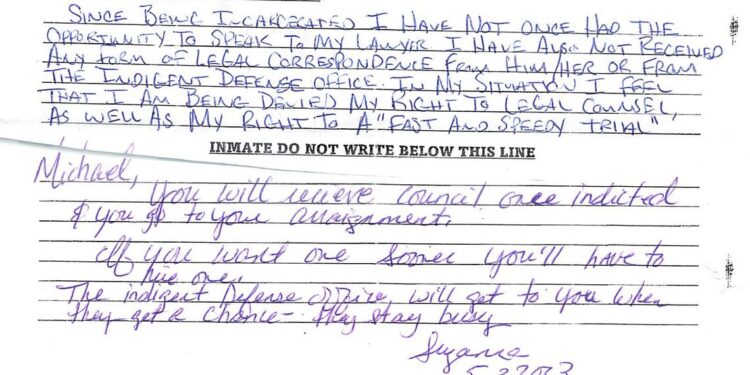 SINCE BEING INCARCERATED I HAVE NOT ONCE HAD THE
OPPORTUNITY TO SPEAK TO MY LAWYER I HAVE ALSO NOT RECEIVED
ANY FORM OF LEGAL CORRESPONDENCE FROM HIM/HER OR FROM
THE INDIGENT DEFENSE OFFICE. IN MY SITUATION I FEEL
THAT I AM BEING DENIED MY RIGHT TO LEGAL COUNSEL,
AS WELL AS MY RIGHT TO A "FAST AND SPEEDY TRIAL"
INMATE DO NOT WRITE BELOW THIS LINE
Michael,
You will receive council once indicted
& you go to your arraignment.
If you want one sooner you'll have to
hire one.
The indigent Defense office, will get to you when
they get a chance - they stay busy
Suzanne